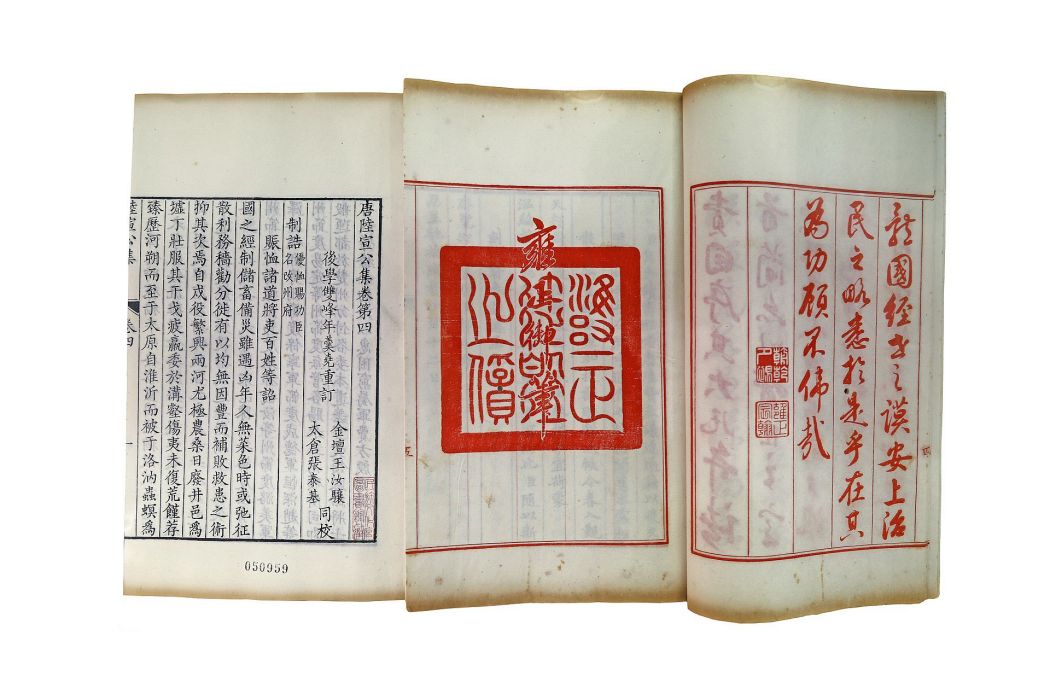 體國經世之謨安上治
民之略悉於是乎在其
為功顧不偉哉
雍
唐陸宣公集卷第四
後學雙峰年羹堯重訂
金壇王汝驤
太倉張泰基
同校
制誥
優恤賜功臣
名改州府
賑恤諸道將吏百姓等詔
國之經制儲畜備災雖遇凶年人無菜色時或弛征
散利務穡勸分徙有以均無因豐而補敗救患之術
抑其次焉自戎役繁興兩河尤極農桑日廢井邑爲
墟丁壯服其干戈疲羸委於溝壑傷夷未復荒饉荐
臻歷河朔而至于太原自淮沂而被于洛汭蟲螟爲
陸宣公集
卷四
一
050959